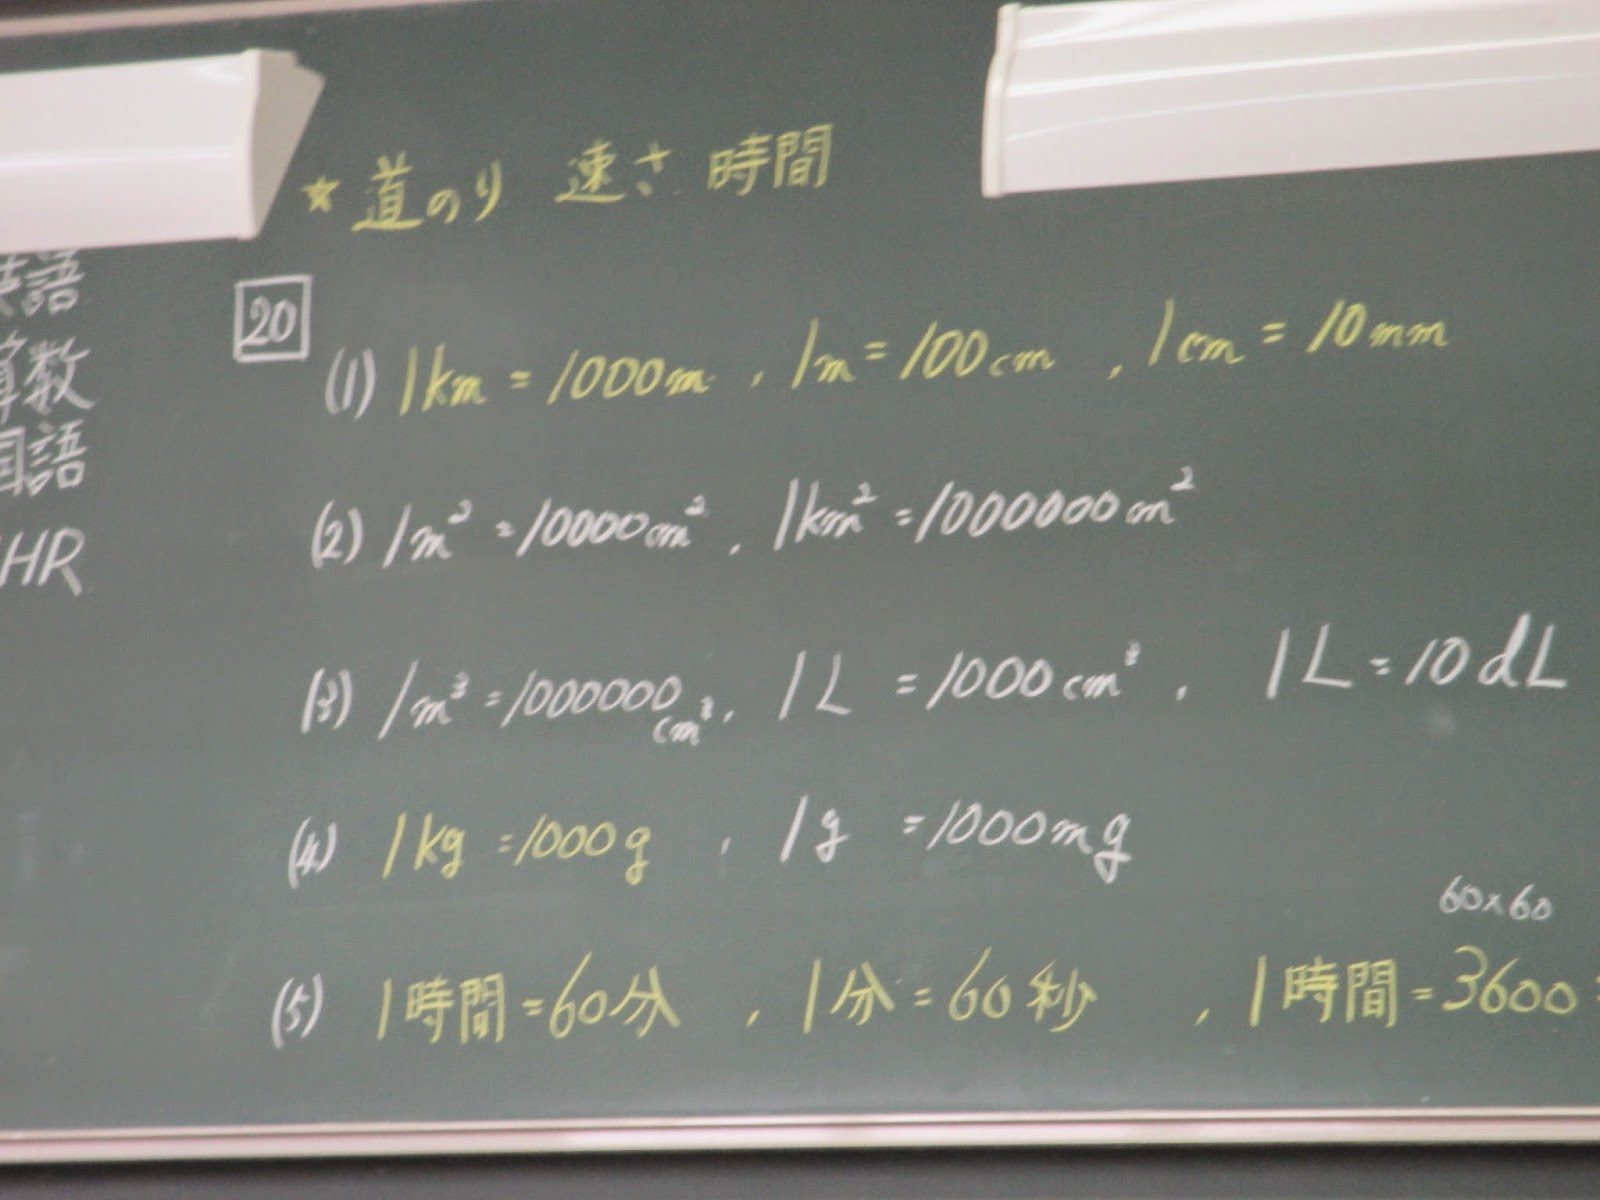 ★道のり 速さ 時間
語
算数
国語
HR
20
(1) 1km = 1000m , 1m = 100cm , 1cm = 10mm
(2) 1m² = 10000cm² , 1km² = 1000000m²
(3) 1m³ = 1000000cm³ , 1L = 1000cm³ , 1L = 10dL
(4) 1kg = 1000g , 1g = 1000mg
60×60
(5) 1時間 = 60分 , 1分 = 60秒 , 1時間 = 3600